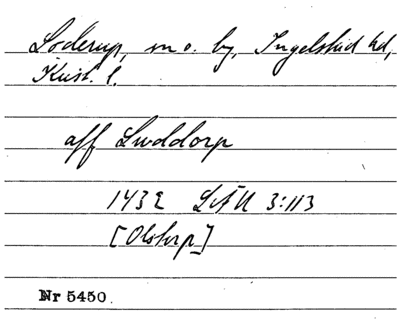 Löderup, sn o. by, Ingelstad hd,
Krist. l.
aff Luddorp
1432 LÅU 3:113
[Olstorp]
Nr 5450